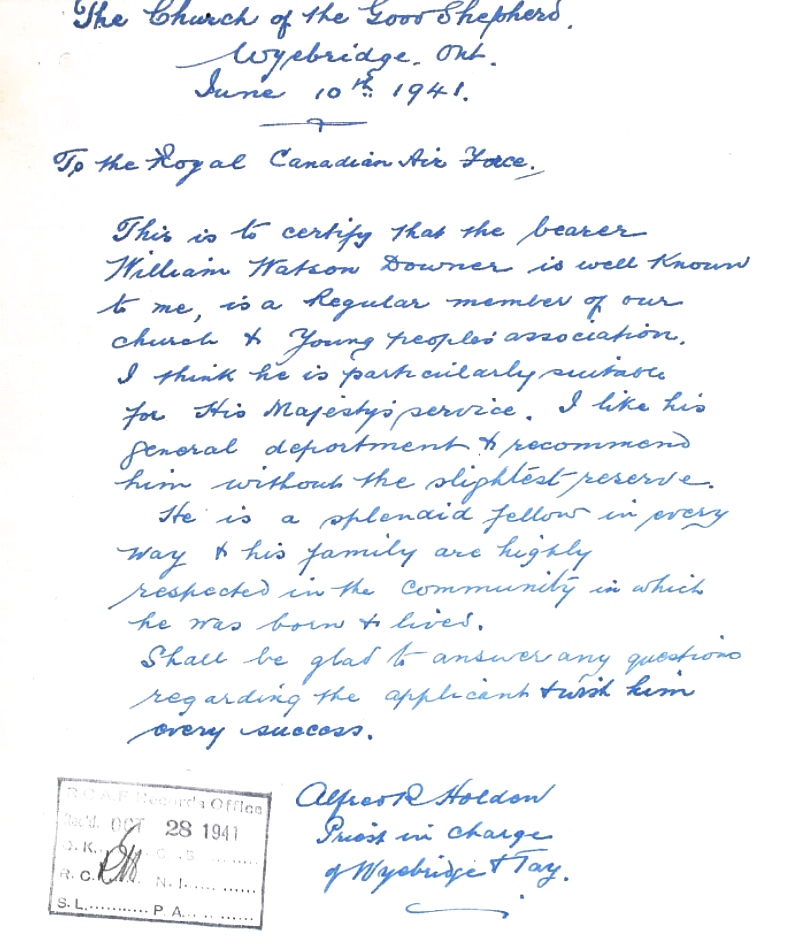 The Church of the Good Shepherd.
Wyebridge. Ont.
June 10th. 1941.
To the Royal Canadian Air Force.
This is to certify that the bearer
William Watson Downer is well Known
to me, is a Regular member of our
church & Young peoples' association.
I think he is particularly suitable
for His Majesty's service. I like his
general department & recommend
him without the slightest reserve.
He is a splendid fellow in every
way & his family are highly
respected in the community in which
he was born & lived.
Shall be glad to answer any questions
regarding the applicant & wish him
every success.
Alfred R Holden
Priest in charge
of Wyebridge & Tay.
R.C.A.F. Records Office
Rec'd. OCT 28 1941
O.K. C.S.
R.C. N.I.
S.L. P.A.